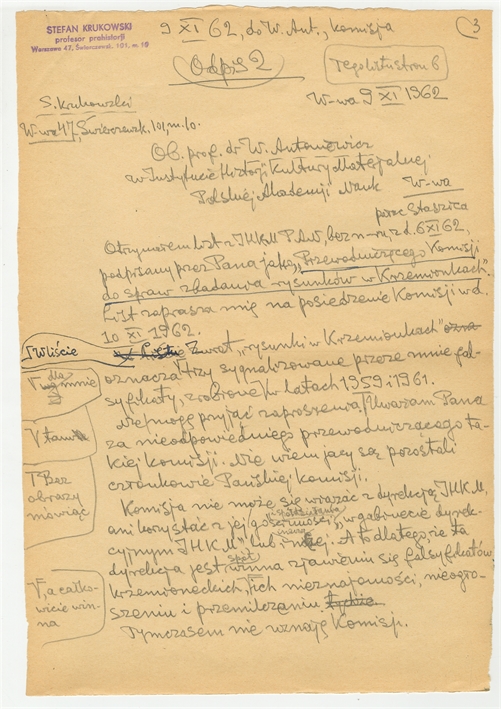 STEFAN KRUKOWSKI
profesor prehistorji
Warszawa 47, Świerczewsk. 101, m. 10
9 XI 62, do W. Ant., Komisja
3
Odpis 2
Tego listu stron 6
S. Krukowski
W-wa 9 XI 1962
W-wa 47, Świerczewsk. 101, m. 10.
Ob. prof. dr W. Antoniewicz
w Instytucie Historji Kultury Materjalnej
Polskiej Akademji Nauk W-wa
pałac Staszica
Otrzymałem list z IHKM PAN, bez n-ru, z d. 6 XI 62,
podpisany przez Pana jako „Przewodniczącego Komisji
do spraw zbadania rysunków w Krzemionkach".
List zaprasza mię na posiedzenie Komisji w d.
10 XI 1962.
W liście
Zwrot „rysunki w Krzemionkach"
dla mnie
oznacza trzy sygnalizowane przeze mnie fal-
syfikaty, zrobione w latach 1959 i 1961.
Nie mogę przyjąć zaproszenia. Uważam Pana
V tam
za nieodpowiedniego przewodniczącego ta-
kiej komisji. Nie wiem jacy są pozostali
członkowie Pańskiej komisji.
Bez
obrazy
mówiąc
Komisja nie może się wiązać z dyrekcją IHKM,
ani korzystać z jej gościnności „w gabinecie dyrek-
cyjnym IHKM" lub innej. A to dlatego, że ta
dyrekcja jest winna zjawieniu się falsyfikatów
V, a całko-
wicie win-
na
krzemioneckich, ich nieznajomości, nieogło-
szeniu i przemilczaniu
Tymczasem nie uznaję Komisji.